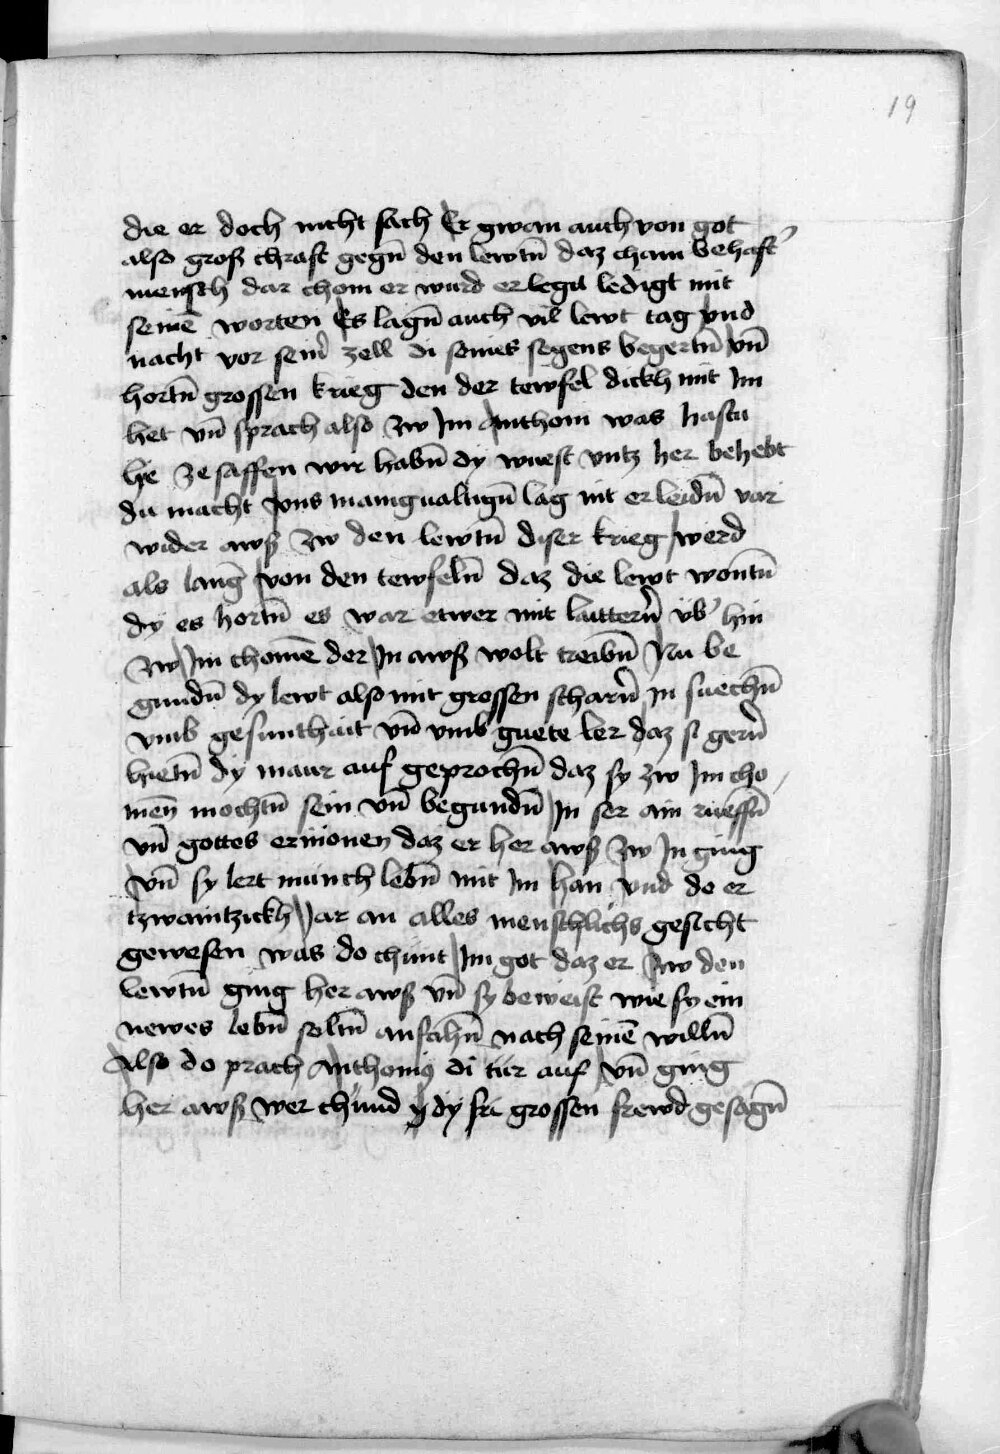 19
die er doch nicht sach Er gwan auch von got
also groß chraft gegn̄ den lewtn̄ daz cham behaft'
mensch dar chom er wurd erlegit ledigt mit
seinē worten Es lagn̄ auch vil lewt tag vnd
nacht vor sein' zell di seines segens begertn̄ vn̄
hortn̄ grossen krieg den der tewfel dickh mit Im
het vn̄ sprach also zw Im Anthoni was hastu
hie ze saffen wir habn̄ dy wuest vntz her behebt
du macht vns manigualtign̄ lag nit erleidn̄ var
wider awß zw den lewtn̄ diser krieg werd
als lanḡ von den tewfeln̄ daz die lewt wontn̄
dy es hortn̄ es war etwer mit lauttern̄ vb' hin
zw Im chomē der In awß wolt treibn̄ Nu be
gundn̄ dy lewt also mit grossen scharn̄ in suechn̄
vmb gesunthait vn̄ vmb guete ler daz si gern̄
hietn̄ dy maur auf geprochn̄ daz sy zw Im cho
men̄ mochtn̄ sein vn̄ begundn̄ In ser an rueffn̄
vn̄ gottes ermonen daz er her awß zw In ging
vn̄ sy lert münch lebn̄ mit Im han vnd do er
tzwaintzickh Jar an alles menschlichs gesicht
gewesen was do chunt Im got daz er zw den
lewtn̄ ging her awß vn̄ sy beweist wie sy ein
newes lebn̄ soltn̄ anfahn̄ nach seinē willn̄
Also do prach Anthoniꝰ di tür auf vn̄ ging
her awß wer chund y dy grossen frewd gesagn̄